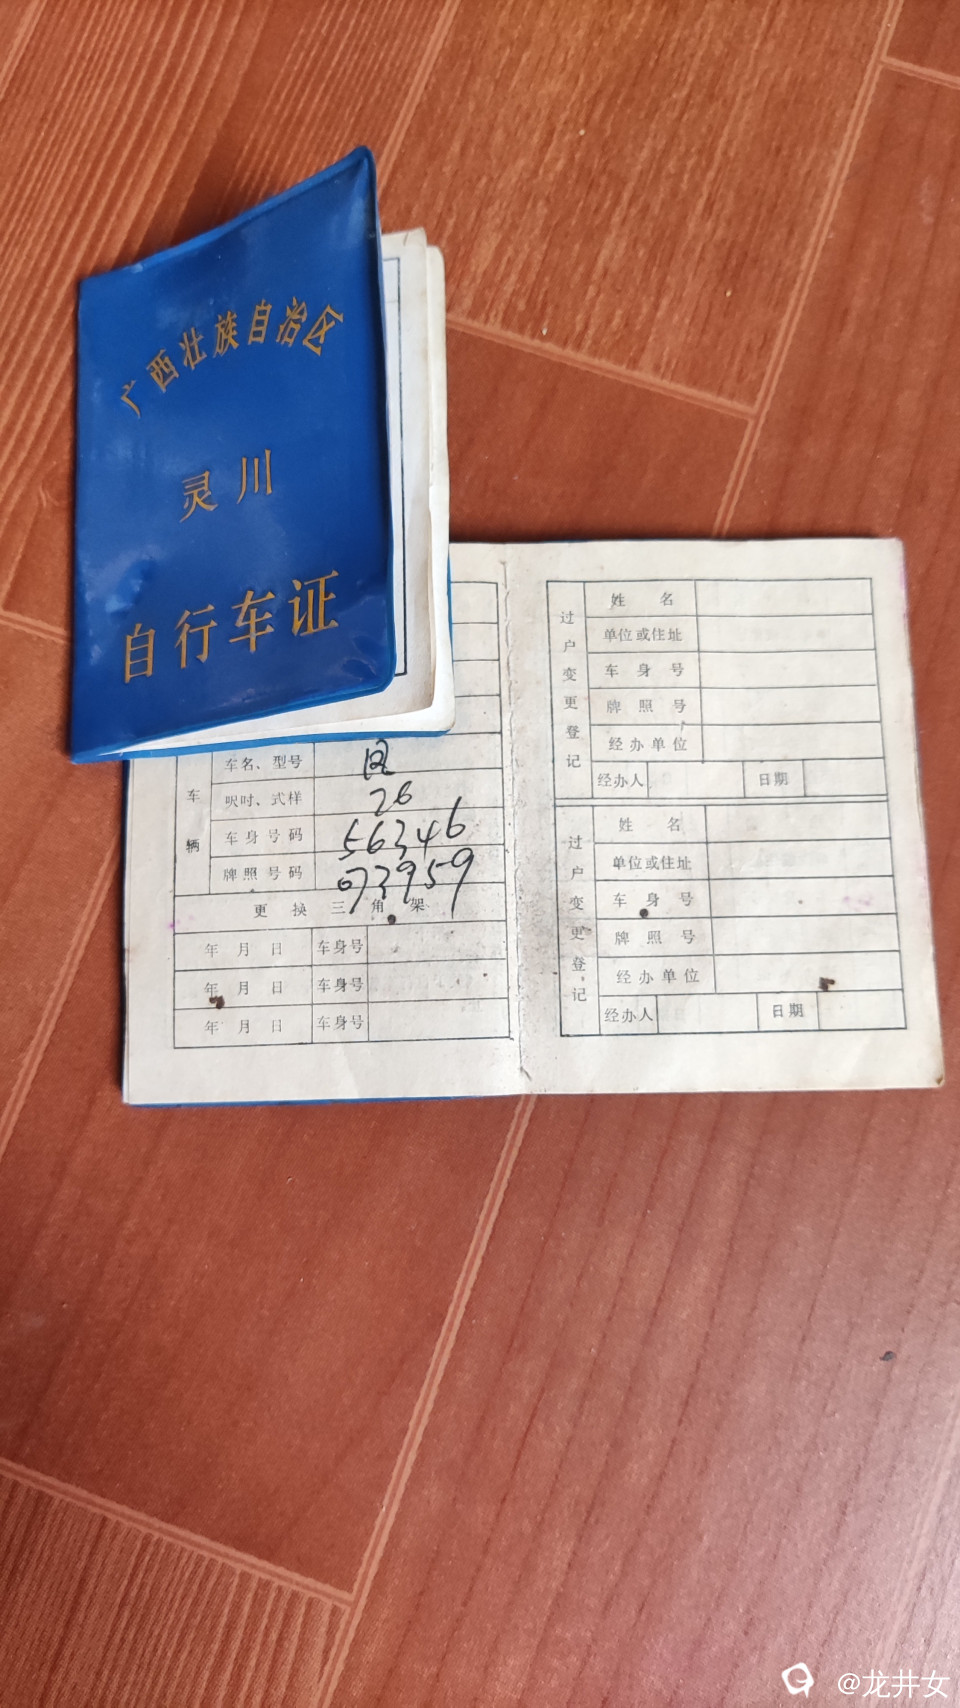 广西壮族自治区
灵川
自行车证
车辆
车名、型号
呎吋、式样 26
车身号码 56346
牌照号码 073959
更换三角架
年 月 日 车身号
年 月 日 车身号
年 月 日 车身号
过户变更登记
姓名
单位或住址
车身号
牌照号
经办单位
经办人 日期
过户变更登记
姓名
单位或住址
车身号
牌照号
经办单位
经办人 日期
@龙井女